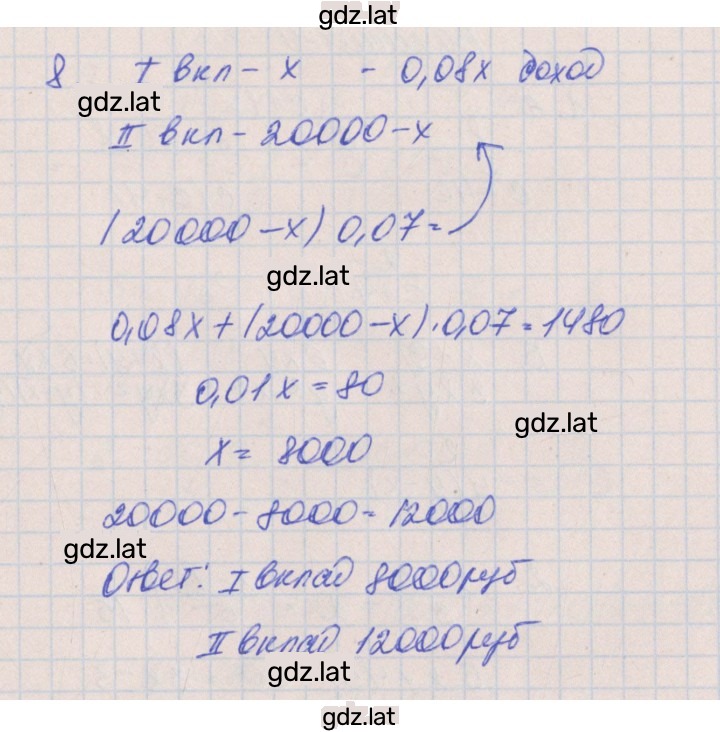 gdz.lat
8 I вкл - x - 0,08x доход
gdz.lat
II вкл - 20000 - x
(20000 - x) 0,07 =
gdz.lat
0,08x + (20000 - x) · 0,07 = 1480
0,01x = 80
gdz.lat
x = 8000
20000 - 8000 = 12000
gdz.lat
Ответ: I вклад 8000 руб
II вклад 12000 руб
gdz.lat
gdz.lat